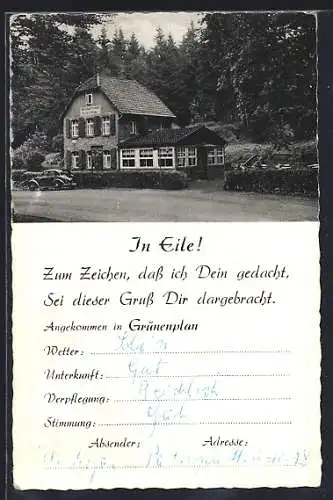 In Eile!
Zum Zeichen, daß ich Dein gedacht,
Sei dieser Gruß Dir dargebracht.
Angekommen in Grünenplan
Wetter:
Unterkunft: Gut
Verpflegung: Reichlich
Stimmung:
Absender: Adresse: